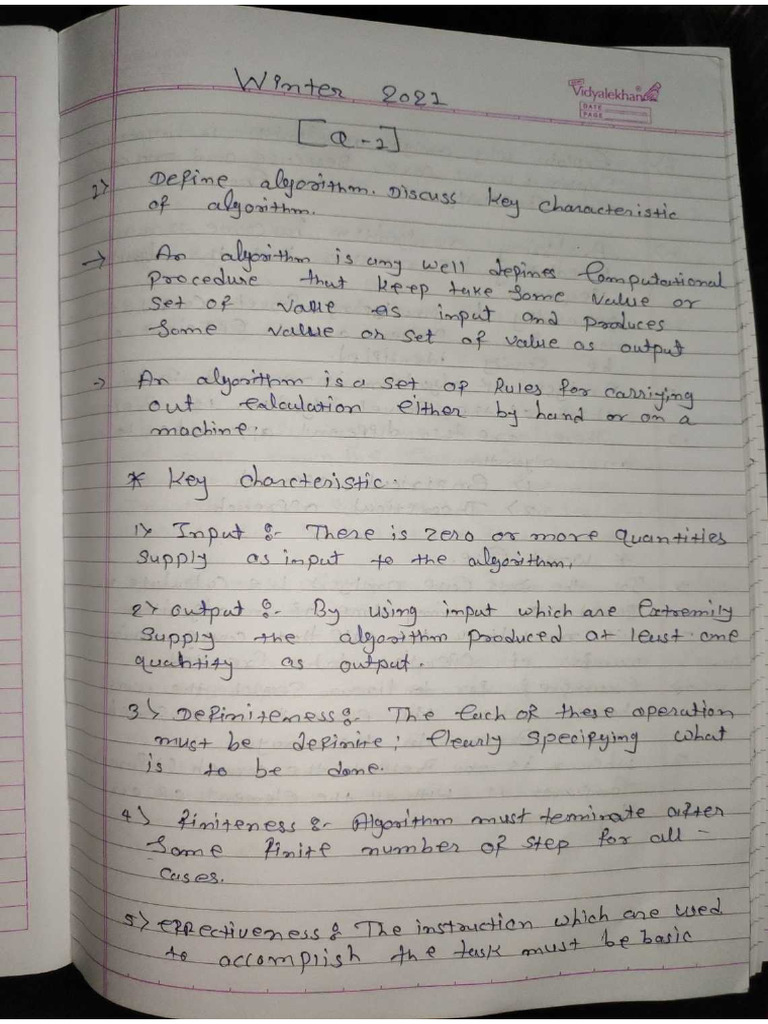 Winter 2021
Vidyalekhan
DATE
PAGE
[Q-1]
1> Define algorithm. Discuss key characteristic
of algorithm.
→ An algorithm is any well defines Computational
procedure that keep take some value or
set of value as input and produces
some value or set of value as output
→ An algorithm is a set of Rules for carriying
out calculation either by hand or on a
machine.
* key charcteristic.
1> Input :- There is zero or more quantities
supply as input to the algorithm.
2> output :- By using input which are Extremily
supply the algorithm produced at least one
quantity as output.
3> Definiteness :- The Each of these operation
must be definite; clearly specifying what
is to be done.
4> finiteness :- Algorithm must terminate after
some finite number of step for all -
cases.
5> effectiveness :- The instruction which are used
to accomplish the task must be basic